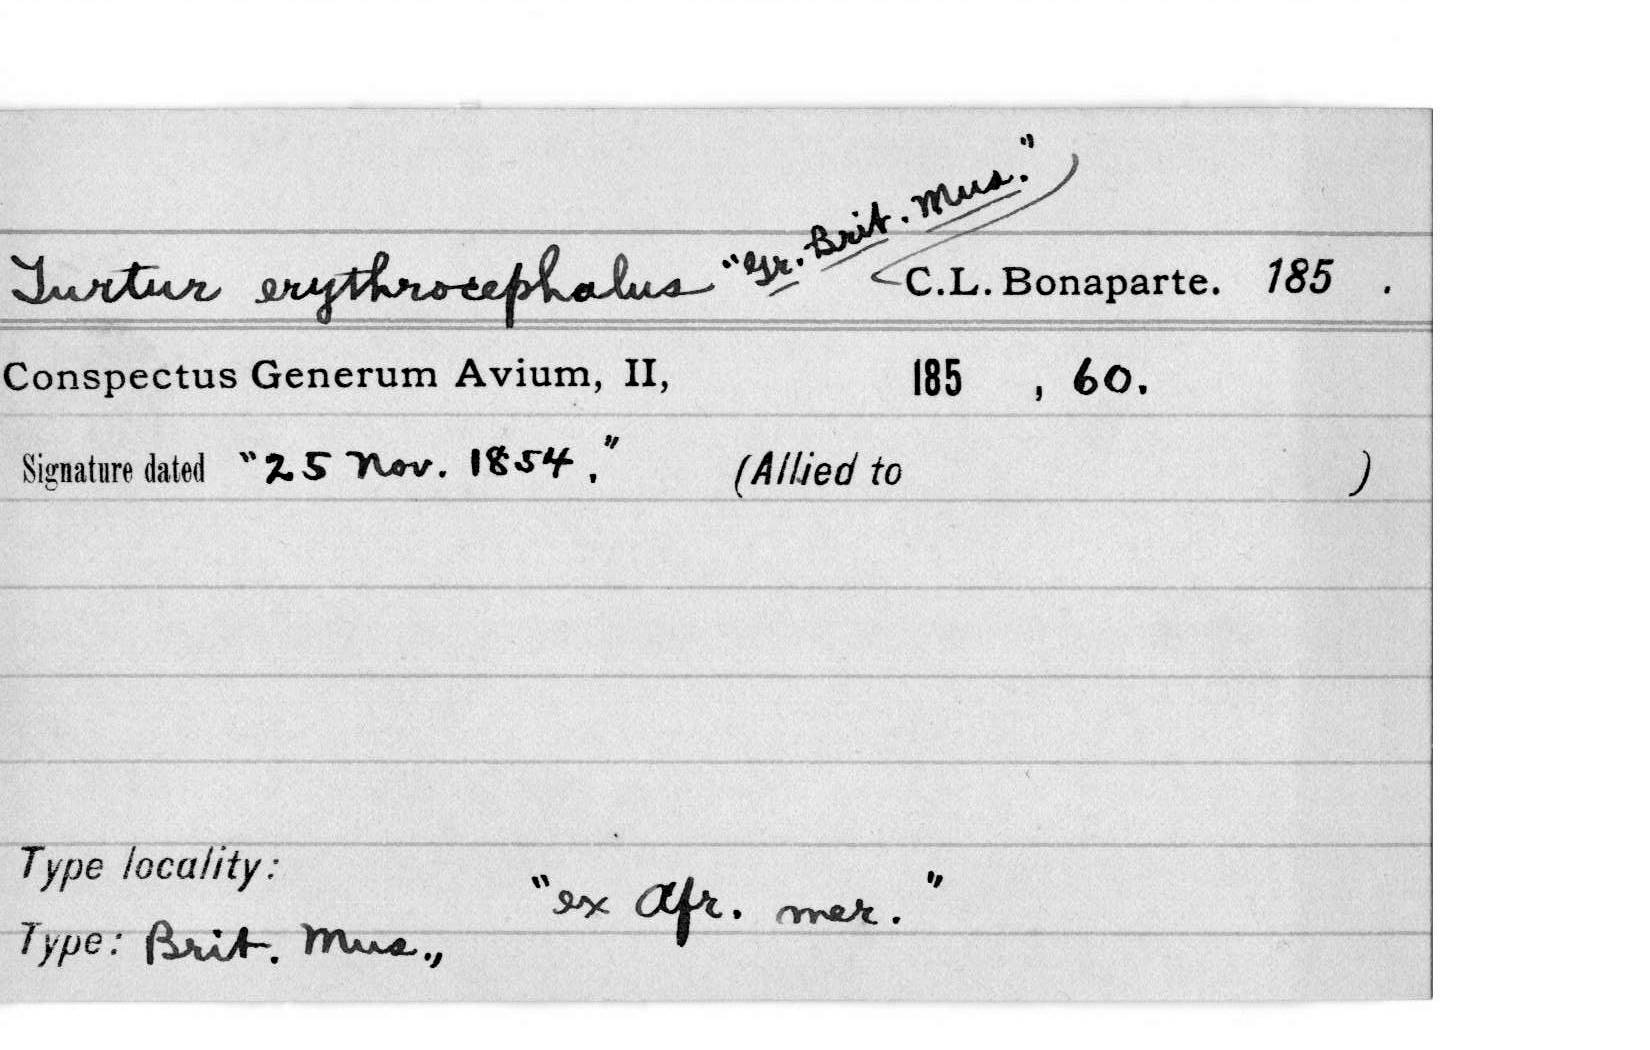 Turtur erythrocephalus "Gr. Brit. Mus." C.L. Bonaparte. 185 .
Conspectus Generum Avium, II, 185 , 60.
Signature dated "25 Nov. 1854." (Allied to )
Type locality:
"ex Afr. mer."
Type: Brit. Mus.,